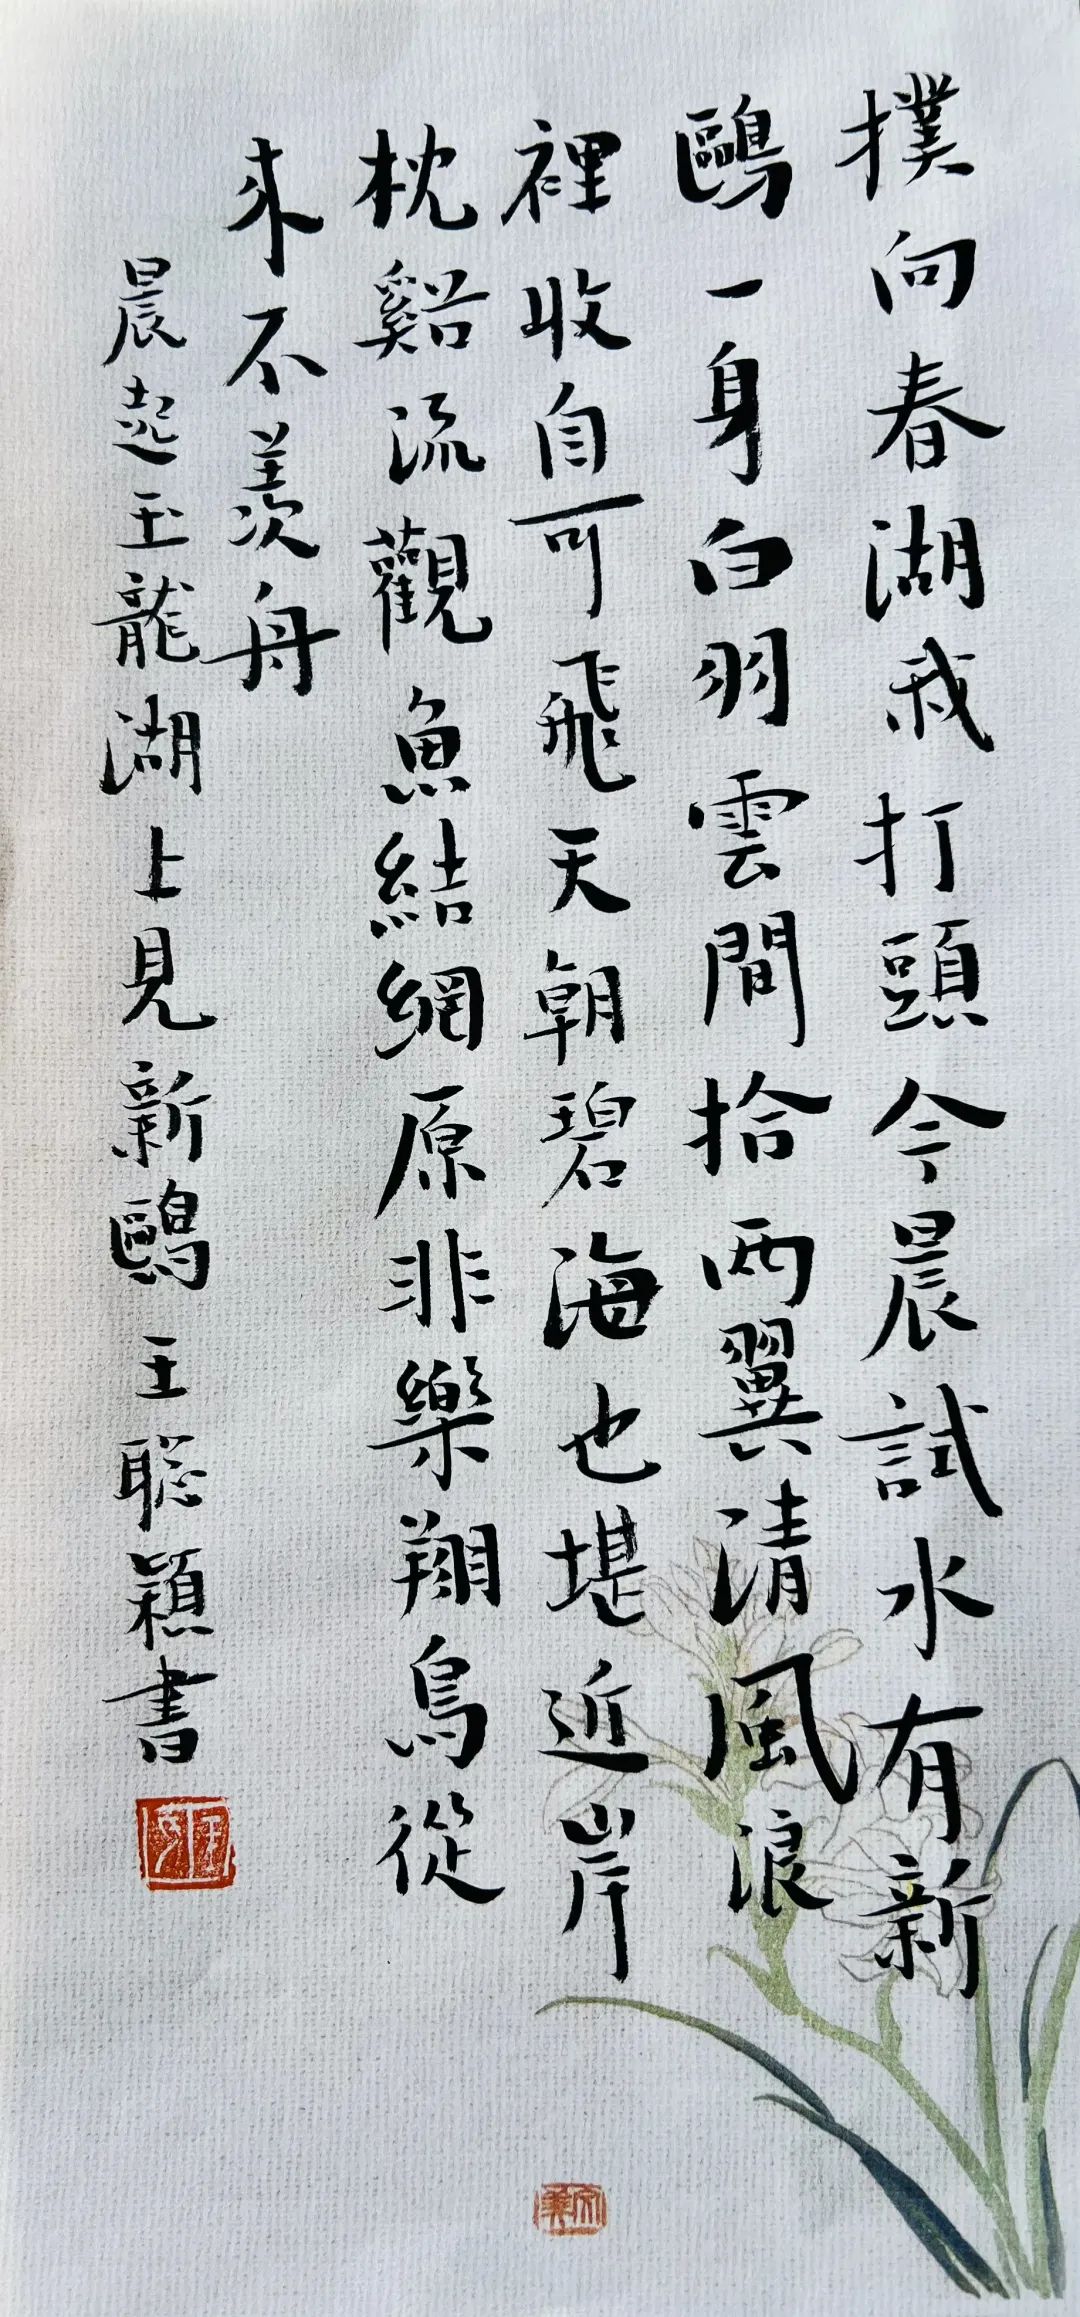 撲向春湖我打頭今晨試水有新
鷗一身白羽雲間拾两翼清風浪
裡收自可飛天朝碧海也堪近岸
枕谿流觀魚結網原非樂翔鳥從
來不羨舟
晨起玉龍湖上見新鷗 王聡穎書